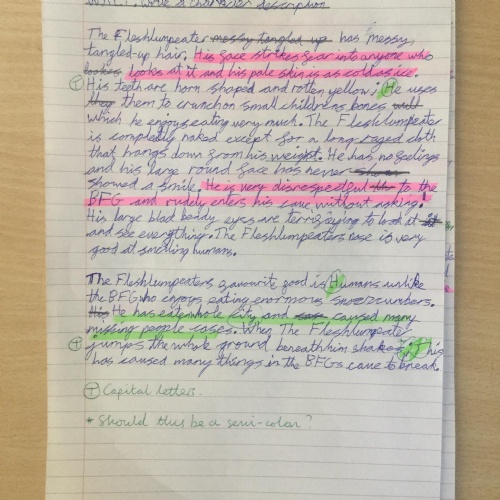 Write a character description
The Fleshlumpeater messy tangled up has messy,
tangled-up hair. His face strikes fear into anyone who
lookes looks at it and his pale skin is as cold as ice.
T His teeth are horn shaped and rotten yellow; He uses
they them to crunch on small childrens bones will
which he enjoys eating very much. The Fleshlumpeater
is completly naked except for a long raged cloth
that hangs down from his weight. He has no feelings
and his large round face has never shown
showed a smile. He is very disrespectful to the
BFG and rudely enters his cave without asking.
His large blad beady eyes are terrifying to look at it
and see everything. The Fleshlumpeaters nose is very
good at smelling humans.
The Fleshlumpeaters favourite food is Humans unlike
the BFG who enjoys eating enormous snozzcumbers.
His He has eaten whole city and caused many
missing people cases. When The Fleshlumpeater
T jumps the whole ground beneath him shakes, it his
has caused many things in the BFGs cave to break.
T Capital letters.
* Should this be a semi-colon?